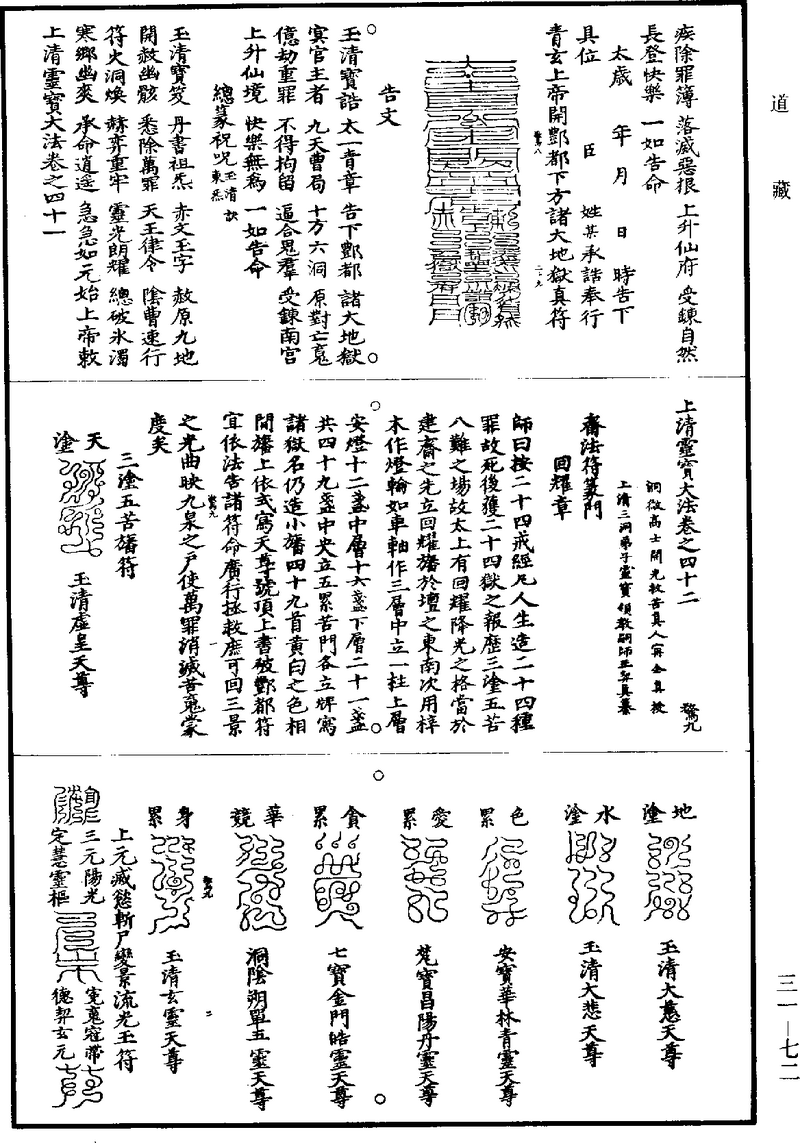 道藏
疾除罪簿 落滅惡根 上升仙府 受鍊自然
長登快樂 一如告命
太歲 年 月 日 時告下
具位 臣 姓某承誥奉行
青玄上帝開酆都下方諸大地獄真符
告文
玉清寶誥 太一青章 告下酆都 諸大地獄
冥官主者 九天曹局 十方六洞 原對亡䰟
億劫重罪 不得拘留 逼合䰟羣 受鍊南宮
上升仙境 快樂無為 一如告命
總篆祝呪 玉清訣 東炁
玉清寶笈 丹書祖炁 赤文玉字 赦原九地
開赦幽骸 悉除萬罪 天王律令 陰曹速行
符火洞煥 赫奕重牢 靈光朗耀 總破氷濁
寒鄉幽爽 承命逍遥 急急如元始上帝敕
上清靈寶大法卷之四十一
上清靈寶大法卷之四十二 驚九
洞微高士開光救苦真人甯全真授
上清三洞弟子靈寶領教嗣師王契真纂
齋法符篆門
回耀章
師曰按二十四戒經凡人生造二十四種
罪故死後獲二十四獄之報歷三塗五苦
八難之場故太上有回耀降光之格當於
建齋之先立回耀旛於壇之東南次用梓
木作燈輪如車軸作三層中立一柱上層
安燈十二盞中層十六盞下層二十一盞
共四十九盞中央立五累苦門各立牌寫
諸獄名仍造小旛四十九首黄白之色相
間旛上依式寫天尊號頂上書破酆都符
宜依法告諸符命廣行拯救庶可回三景
之光曲映九泉之戶使萬罪消滅苦䰟蒙
度矣
三塗五苦旛符
天塗 玉清虛皇天尊
地塗 玉清大慈天尊
水塗 玉清大悲天尊
色累 安寶華林青靈天尊
愛累 梵寶昌陽丹靈天尊
貪累 七寶金門皓靈天尊
華競 洞陰朔單五靈天尊
身累 玉清玄靈天尊
上元滅慾斬尸變景流光玉符
三元陽光
定慧靈樞
德契玄元
三一—七二